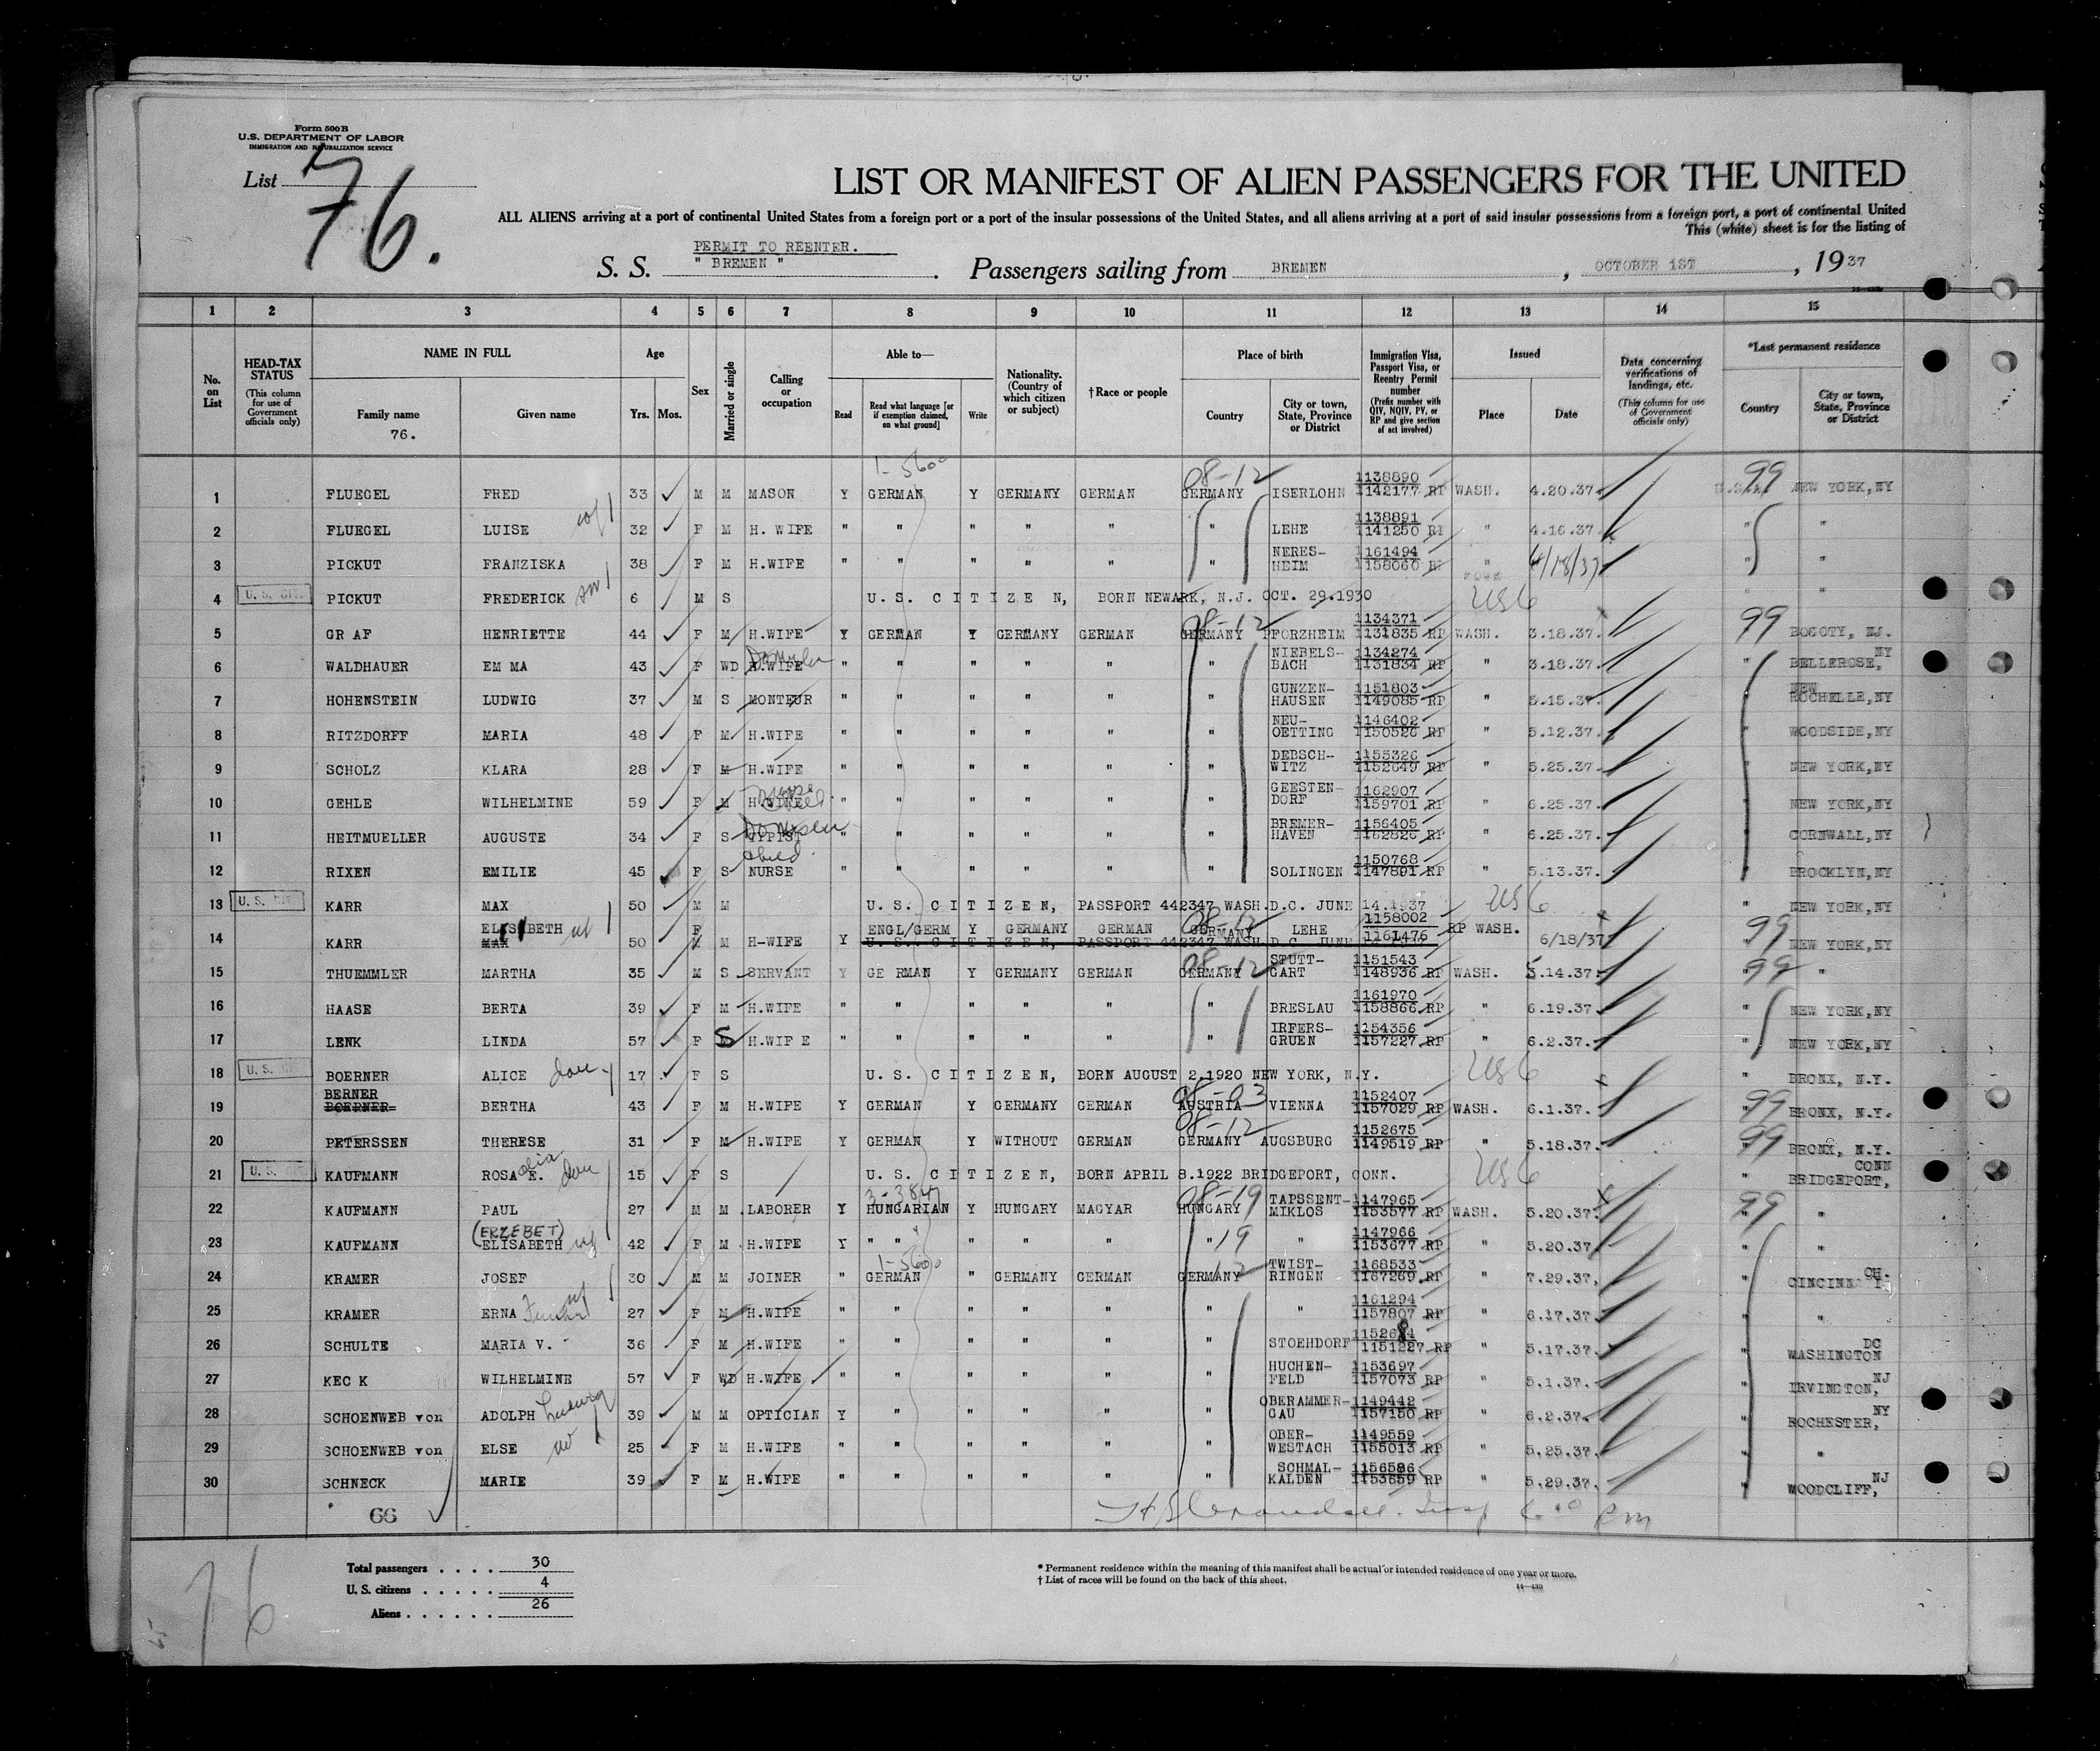 Form 500 B
U.S. DEPARTMENT OF LABOR
IMMIGRATION AND NATURALIZATION SERVICE
List 76.
LIST OR MANIFEST OF ALIEN PASSENGERS FOR THE UNITED
ALL ALIENS arriving at a port of continental United States from a foreign port or a port of the insular possessions of the United States, and all aliens arriving at a port of said insular possessions from a foreign port, a port of continental United
This (white) sheet is for the listing of
PERMIT TO REENTER.
S. S. " BREMEN ". Passengers sailing from BREMEN, OCTOBER 1ST, 19 37
1 2 3 4 5 6 7 8 9 10 11 12 13 14 15
No. on List
HEAD-TAX STATUS (This column for use of Government officials only)
NAME IN FULL Family name 76. Given name
Age Yrs. Mos.
Sex
Married or single
Calling or occupation
Able to— Read Read what language [or if exemption claimed, on what ground] Write
Nationality. (Country of which citizen or subject)
†Race or people
Place of birth Country City or town, State, Province or District
Immigration Visa, Passport Visa, or Reentry Permit number (Prefix number with QIV, NQIV, PV, or RP and give section of act involved)
Issued Place Date
Data concerning verifications of landings, etc. (This column for use of Government officials only)
*Last permanent residence Country City or town, State, Province or District
1-5600 08-12 99
1 FLUEGEL FRED 33 M M MASON Y GERMAN Y GERMANY GERMAN GERMANY ISERLOHN 1138890 1142177 RP WASH. 4.20.37. U.S.A. NEW YORK,NY
2 FLUEGEL LUISE 32 F M H. WIFE " " " " " " LEHE 1138891 1141250 RP " 4.16.37 " "
3 PICKUT FRANZISKA 38 F M H.WIFE " " " " " " NERES-HEIM 1161494 1158060 RP " 4/18/37 " "
4 U. S. CIT. PICKUT FREDERICK son 6 M S U. S. C I T I Z E N, BORN NEWARK, N.J. OCT. 29.1930 US6 " "
5 GR AF HENRIETTE 44 F M H.WIFE Y GERMAN Y GERMANY GERMAN 08-12 GERMANY PFORZHEIM 1134371 1131835 RP WASH. 3.18.37. 99 BOGOTY, NJ.
6 WALDHAUER EM MA 43 F WD H.WIFE " " " " " " NIEBELS-BACH 1134274 1131834 RP " 3.18.37. " BELLEROSE, NY
7 HOHENSTEIN LUDWIG 37 M S MONTEUR " " " " " " GUNZEN-HAUSEN 1151803 1149085 RP " 5.15.37. " NEW ROCHELLE,NY
8 RITZDORFF MARIA 48 F M H.WIFE " " " " " " NEU-OETTING 1146402 1150526 RP " 5.12.37. " WOODSIDE,NY
9 SCHOLZ KLARA 28 F M H.WIFE " " " " " " DEBSCH-WITZ 1155326 1152649 RP " 5.25.37. " NEW YORK,NY
10 GEHLE WILHELMINE 59 F M H.WIFE nurse " " " " " " GEESTEN-DORF 1162907 1159701 RP " 6.25.37. " NEW YORK,NY
11 HEITMUELLER AUGUSTE 34 F S TYPIST " " " " " " BREMER-HAVEN 1156405 1162826 RP " 6.25.37. " CORNWALL,NY
12 RIXEN EMILIE 45 F S child. NURSE " " " " " " SOLINGEN 1150768 1147891 RP " 5.13.37. " BROOKLYN,NY
13 U. S. CIT. KARR MAX 50 M M U. S. C I T I Z E N, PASSPORT 442347 WASH.D.C. JUNE 14.1937 US6 " NEW YORK,NY
14 KARR ELISABETH MAX wf 50 F M H-WIFE Y ENGL/GERM Y GERMANY GERMAN 08-12 GERMANY LEHE 1158002 1161476 RP WASH. 6/18/37 99 NEW YORK,NY
U. S. C I T I Z E N, PASSPORT 442347 WASH.D.C. JUNE
15 THUEMMLER MARTHA 35 M S SERVANT Y GE RMAN Y GERMANY GERMAN 08-12 GERMANY STUTT-GART 1151543 1148936 RP WASH. 5.14.37. 99 "
16 HAASE BERTA 39 F M H.WIFE " " " " " " BRESLAU 1161970 1158866 RP " 6.19.37 " NEW YORK,NY
17 LENK LINDA 57 F S H.WIF E " " " " " " IRFERS-GRUEN 1154356 1157227 RP " 6.2.37. " NEW YORK,NY
18 U. S. CIT. BOERNER ALICE dau 17 F S U. S. C I T I Z E N, BORN AUGUST 2.1920 NEW YORK, N.Y. US6 " BRONX, N.Y.
19 BERNER BOERNER BERTHA 43 F M H.WIFE Y GERMAN Y GERMANY GERMAN 08-03 AUSTRIA VIENNA 1152407 1157029 RP WASH. 6.1.37. 99 BRONX, N.Y.
20 PETERSSEN THERESE 31 F M H.WIFE Y GERMAN Y WITHOUT GERMAN 08-12 GERMANY AUGSBURG 1152675 1149519 RP " 5.18.37. 99 BRONX, N.Y.
21 U. S. CIT. KAUFMANN ROSA E. alia dau 15 F S U. S. C I T I Z E N, BORN APRIL 8.1922 BRIDGEPORT, CONN. US6 " BRIDGEPORT, CONN
22 KAUFMANN PAUL 27 M M LABORER Y 3-3847 HUNGARIAN Y HUNGARY MAGYAR 08-19 HUNGARY TAPSSENT-MIKLOS 1147965 1153577 RP WASH. 5.20.37. 99 "
23 KAUFMANN (ERZEBET) ELISABETH wf 42 F M H.WIFE Y " " " " " " 19 " 1147966 1153677 RP " 5.20.37 " "
24 KRAMER JOSEF 30 M M JOINER " 1-5600 GERMAN " GERMANY GERMAN GERMANY 12 TWIST-RINGEN 1168533 1167269 RP " 7.29.37, " CINCINNATI OH.
25 KRAMER ERNA wf 27 F M H.WIFE " " " " " " " 1161294 1157807 RP " 6.17.37 " "
26 SCHULTE MARIA V. 36 F M H.WIFE " " " " " " STOEHDORF 1152684 1151227 RP " 5.17.37. " WASHINGTON DC
27 KEC K WILHELMINE 57 F WD H.WIFE " " " " " " HUCHEN-FELD 1153697 1157073 RP " 5.1.37. " IRVINGTON, NJ
28 SCHOENWEB von ADOLPH Ludwig 39 M M OPTICIAN Y " " " " " OBERAMMER-GAU 1149442 1157150 RP " 6.2.37. " ROCHESTER, NY
29 SCHOENWEB von ELSE 25 F M H.WIFE " " " " " " OBER-WESTACH 1149559 1155013 RP " 5.25.37. " "
30 SCHNECK MARIE 39 F M H.WIFE " " " " " " SCHMAL-KALDEN 1156586 1153659 RP " 5.29.37. " WOODCLIFF, NJ
66
Insp 6.00 pm
Total passengers . . . . 30
U. S. citizens . . . . . 4
Aliens . . . . . . 26
* Permanent residence within the meaning of this manifest shall be actual or intended residence of one year or more.
† List of races will be found on the back of this sheet.
14—430
76